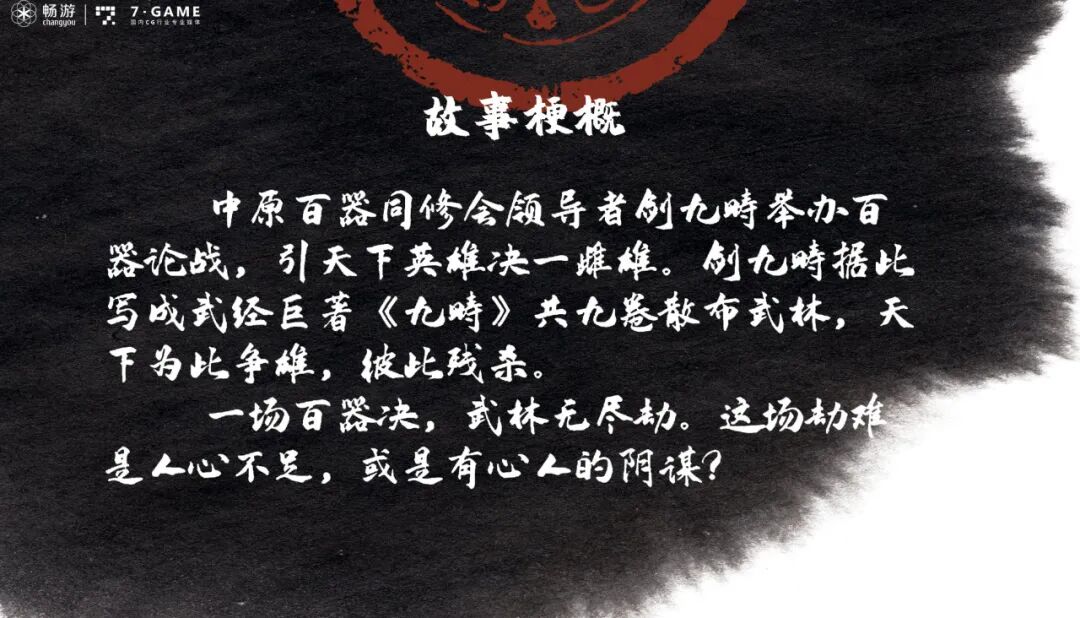 畅游
changyou
7·GAME
国内CG行业专业媒体
故事梗概
中原百器同修会领导者剑九時举办百
器论战，引天下英雄决一雌雄。剑九時据此
写成武经巨著《九時》共九卷散布武林，天
下为此争雄，彼此残杀。
一场百器决，武林无尽劫。这场劫难
是人心不足，或是有心人的阴谋？